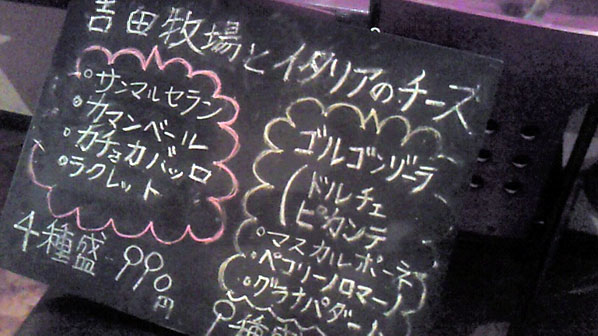 吉田牧場とイタリアのチーズ
°サンマルセラン
°カマンベール
°カチョカバッロ
°ラクレット
4種盛 990円
ゴルゴンゾーラ
(ドルチェ
ピカンテ
°マスカルポーネ
°ペコリーノロマーノ
°グラナパダーノ